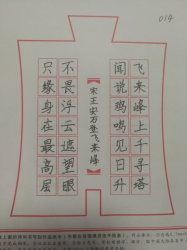 014
飞来峰上千寻塔
闻说鸡鸣见日升
【宋王安石登飞来峰】
不畏浮云遮望眼
只缘身在最高层